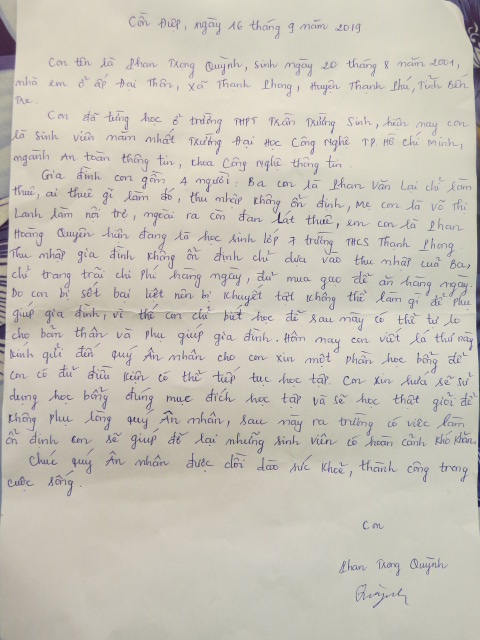 Cồn Điệp, ngày 16 tháng 9 năm 2019
Con tên là Phan Trọng Quỳnh, sinh ngày 20 tháng 8 năm 2001,
nhà em ở ấp Đại Thôn, xã Thạnh Phong, Huyện Thạnh Phú, Tỉnh Bến
Tre.
Con đã từng học ở trường THPT Trần Trường Sinh, hiện nay con
là sinh viên năm nhất Trường Đại Học Công Nghệ TP Hồ Chí Minh,
ngành An toàn thông tin, khoa Công nghệ thông tin.
Gia đình con gồm 4 người: Ba con là Phan Văn Lai chỉ làm
thuê, ai thuê gì làm đó, thu nhập không ổn định, Mẹ con là Võ Thị
Lanh làm nội trợ, ngoài ra còn đan lát thuê, em con là Phan
Hoàng Quyên hiện đang là học sinh lớp 7 trường THCS Thạnh Phong
Thu nhập gia đình không ổn định chỉ dựa vào thu nhập của Ba,
chỉ trang trải chi phí hàng ngày, đủ mua gạo để ăn hàng ngày.
Do con bị sốt bại liệt nên bị khuyết tật không thể làm gì để phụ
giúp gia đình, vì thế con chỉ biết học để sau này có thể tự lo
cho bản thân và phụ giúp gia đình. Hôm nay con viết lá thư này
kính gửi đến quý Ân nhân cho con xin một phần học bổng để
con có đủ điều kiện có thể tiếp tục học tập. Con xin hứa sẽ sử
dụng học bổng đúng mục đích học tập và sẽ học thật giỏi để
không phụ lòng quý Ân nhân, sau này ra trường có việc làm
ổn định con sẽ giúp đỡ lại những sinh viên có hoàn cảnh khó khăn.
Chúc quý Ân nhân được dồi dào sức khoẻ, thành công trong
cuộc sống.
Con
Phan Trọng Quỳnh
Quỳnh